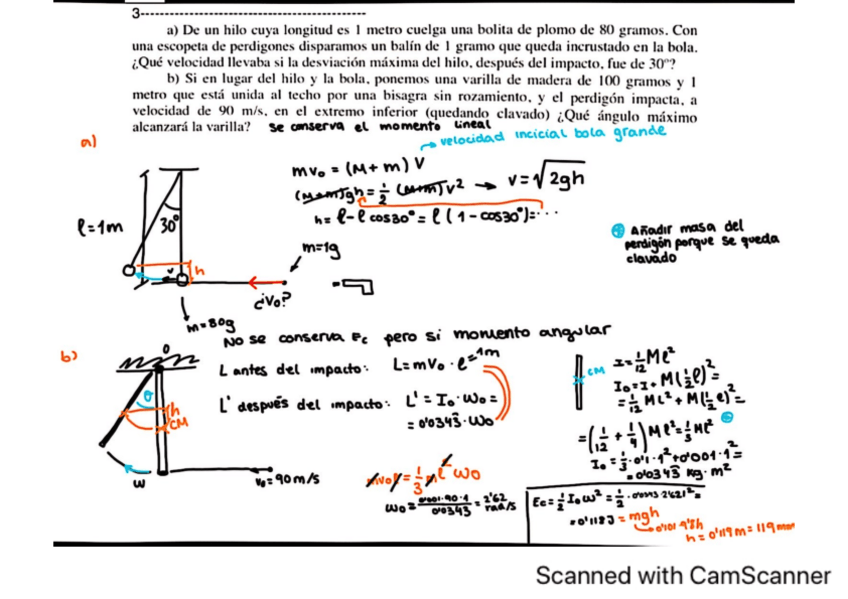 3------------------------------------------------
a) De un hilo cuya longitud es 1 metro cuelga una bolita de plomo de 80 gramos. Con
una escopeta de perdigones disparamos un balín de 1 gramo que queda incrustado en la bola.
¿Qué velocidad llevaba si la desviación máxima del hilo, después del impacto, fue de 30º?
b) Si en lugar del hilo y la bola, ponemos una varilla de madera de 100 gramos y 1
metro que está unida al techo por una bisagra sin rozamiento, y el perdigón impacta, a
velocidad de 90 m/s, en el extremo inferior (quedando clavado) ¿Qué ángulo máximo
alcanzará la varilla? Se conserva el momento lineal
→ velocidad incicial bola grande
a)
mv₀ = (M+m) V
(M+m)gh = 1/2 (M+m)v² → v=√2gh
h= ℓ-ℓcos30° = ℓ(1-cos30°)=...
ℓ=1m
30°
h
v
m=1g
¿V₀?
m=80g
+ Añadir masa del
perdigón porque se queda
clavado
No se conserva Ec pero si momento angular
b)
L antes del impacto: L=mV₀·ℓ=1m
L' después del impacto: L'=I₀·ω₀=
=0'0343·ω₀
O
θ
h
CM
ω
v₀=90m/s
mv₀ℓ=1/3 Mℓ²ω₀
ω₀=0'001·90·1/0'0343=2'62 rad/s
CM
I=1/12 Mℓ²
I₀=I+M(1/2ℓ)²=
=1/12 Mℓ²+M(1/2ℓ)²=
=(1/12+1/4)Mℓ²=1/3Mℓ²
I₀=1/3·0'1·1²+0'001·1²=
=0'0343 kg·m²
Ec=1/2 I₀ω²=1/2·0'0343·2'621²=
=0'118J=mgh
→0'101·9'8h
h=0'119m=119mm
Scanned with CamScanner